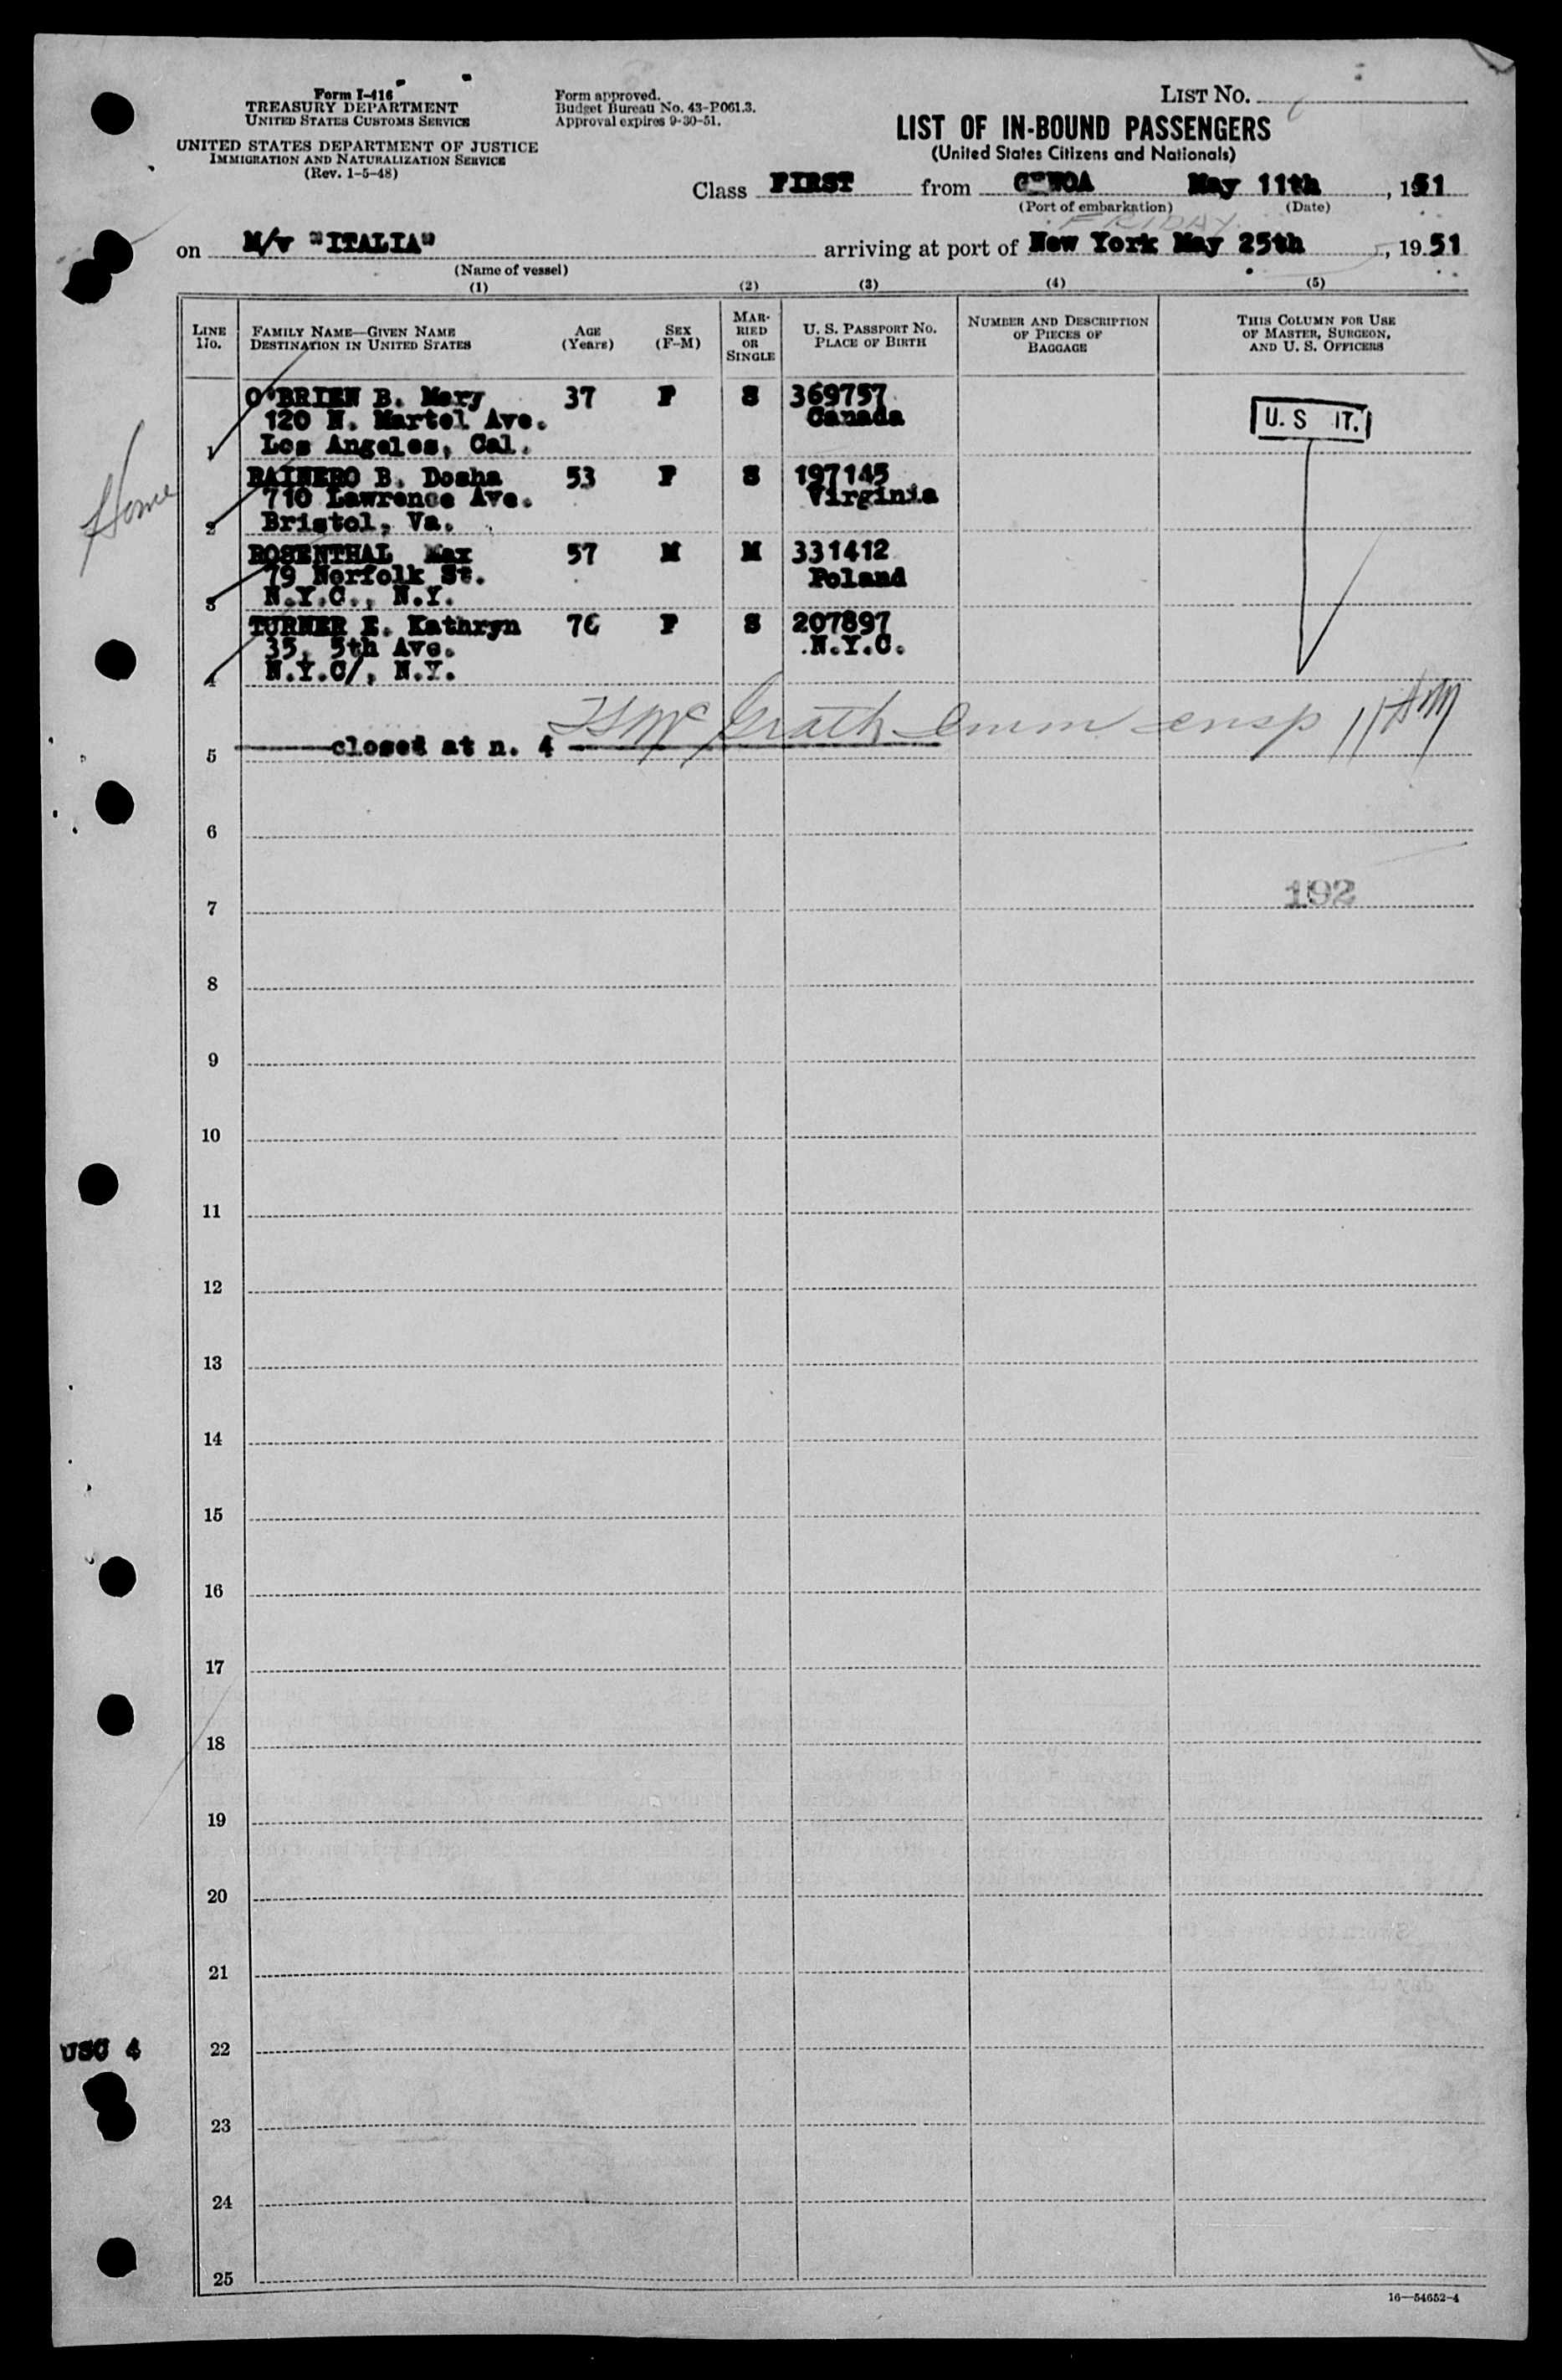 Form I-416
TREASURY DEPARTMENT
UNITED STATES CUSTOMS SERVICE
UNITED STATES DEPARTMENT OF JUSTICE
IMMIGRATION AND NATURALIZATION SERVICE
(Rev. 1-5-48)
Form approved.
Budget Bureau No. 43-P061.3.
Approval expires 9-30-51.
LIST NO.
LIST OF IN-BOUND PASSENGERS
(United States Citizens and Nationals)
Class FIRST from GENOA May 11th, 1951
(Port of embarkation) (Date)
FRIDAY
on M/v "ITALIA" arriving at port of New York May 25th, 1951
(Name of vessel)
(1) (2) (3) (4) (5)
LINE No.
FAMILY NAME—GIVEN NAME
DESTINATION IN UNITED STATES
AGE (Years)
SEX (F-M)
MARRIED OR SINGLE
U. S. PASSPORT NO.
PLACE OF BIRTH
NUMBER AND DESCRIPTION OF PIECES OF BAGGAGE
THIS COLUMN FOR USE OF MASTER, SURGEON, AND U. S. OFFICERS
Home
O'BRIEN B. Mary 37 F S 369757
120 N. Martel Ave. Canada
1 Los Angeles, Cal.
U. S IT.
RAINERO B. Dosha 53 F S 197145
710 Lawrence Ave. Virginia
2 Bristol, Va.
ROSENTHAL Max 57 M M 331412
79 Norfolk St. Poland
3 N.Y.C., N.Y.
TURNER E. Kathryn 76 F S 207897
35, 5th Ave. N.Y.C.
4 N.Y.C/, N.Y.
McGrath Imm insp 11 AM
5 closed at n. 4
6
192
7
8
9
10
11
12
13
14
15
16
17
18
19
20
21
USC 4 22
23
24
25
16—54652-4